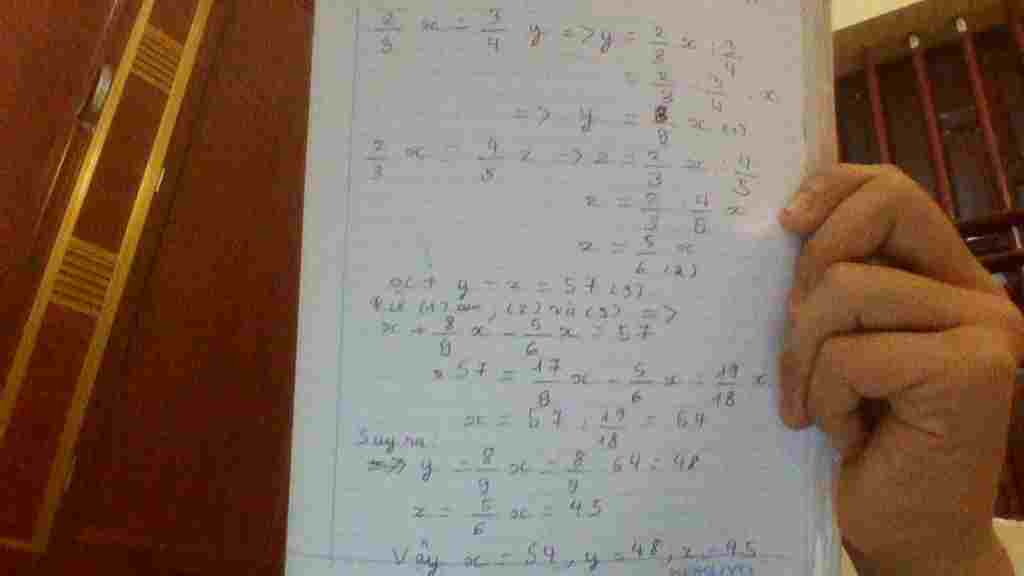 2/3 x = 3/4 y => y = 2/3 x : 3/4
= 2/3 : 3/4 . x
=> y = 8/9 x (1)
2/3 x = 4/5 z => z = 2/3 x : 4/5
z = 2/3 : 4/5 x
z = 5/6 x (2)
x + y - z = 57 (3)
(1), (2) và (3) =>
x + 8/9 x - 5/6 x = 57
57 = 17/9 x - 5/6 x = 19/18 x
x = 57 : 19/18 = 54
Suy ra:
=> y = 8/9 x = 8/9 54 = 48
z = 5/6 x = 45
Vậy x = 54, y = 48, z = 45